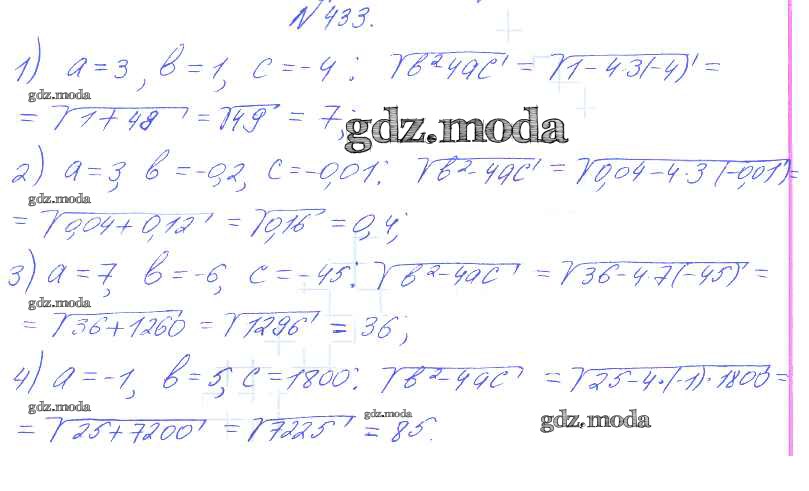 №433.
1) a = 3, b = 1, c = -4: √b²-4ac = √1-4·3(-4) =
gdz.moda
= √1+48 = √49 = 7;
gdz.moda
2) a = 3, b = -0,2, c = -0,01: √b²-4ac = √0,04-4·3(-0,01) =
gdz.moda
= √0,04+0,12 = √0,16 = 0,4;
3) a = 7, b = -6, c = -45: √b²-4ac = √36-4·7(-45) =
gdz.moda
= √36+1260 = √1296 = 36;
4) a = -1, b = 5, c = 1800: √b²-4ac = √25-4·(-1)·1800 =
gdz.moda gdz.moda gdz.moda
= √25+7200 = √7225 = 85.